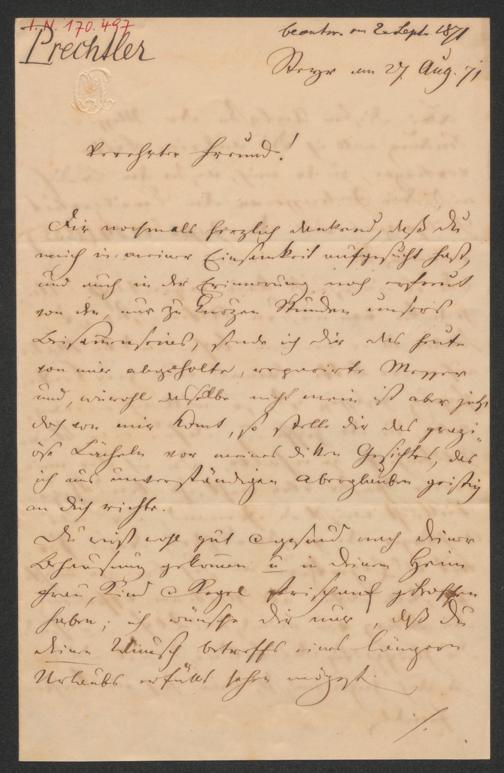 I.N. 170.497
Prechtler
beantw. am 2. Sept. 1871
Steyr am 27 Aug. 71
Verehrter Freund!
Dir nochmals herzlich dankend, daß du
mich in meiner Einsamkeit aufgesucht hast,
und auch in der Erinnerung noch erfreut
von den, nur zu kurzen Stunden unsers
Beisammenseins, sende ich dir das heute
von mir abgeholte, reparirte Messer
und, wiewohl dasselbe nicht mein ist aber jetzt
doch von mir komt, so stelle dir das grazi-
öse Lächeln vor meines dikken Gesichtes, das
ich aus unverständigen Aberglauben geistig
an dich richte.
Du wirst wohl gut & gesund nach deiner
Behausung gekommen u in deinem Heim
Frau, Kind & Kegel frischauf getroffen
haben; ich wünsche dir nur, daß du
deinen Wunsch betreffs eines längern
Urlaubs erfüllt sehen mögest.
./.